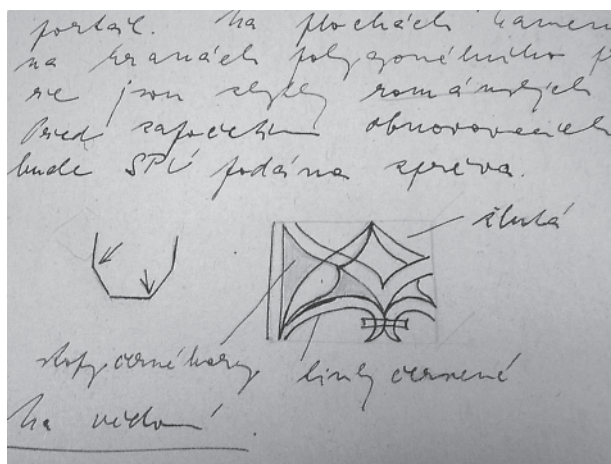 portál. Na plochách kamen
na hranách polygonálního p
se jsou zbytky románských
Před započetím obnovovacích
bude SPÚ podána zpráva.
žlutá
stopy černé barvy linky červené
Na vědomí.